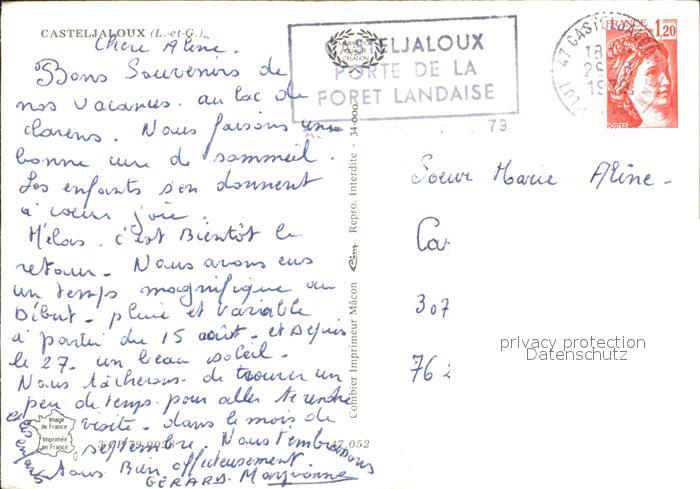 CASTELJALOUX (L.-et-G.)
Chère Aline.
Bons Souvenirs de
nos vacances au lac de
clarens. Nous faisons une
bonne cure de sommeil.
Les enfants s'en donnent
à cœur joie.
Hélas. c'est Bientôt le
retour. Nous avons eus
un temps magnifique au
Début. pluie et variable
à partir du 15 août. et depuis
le 27. un beau soleil.
Nous tâcherons de trouver un
peu de temps pour aller te rendre
visite. dans le mois de
septembre. Nous t'embrassons
tous Bien affectueusement.
GÉRARD. Maryvonne
et les enfants
Image
de France
Imprimée
en France
47.052
Combier Imprimeur Mâcon
Repro. Interdite - 34-000
CASTELJALOUX
PORTE DE LA
FORET LANDAISE
79
47 CASTELJALOUX
FRANCE
1,20
POSTES
Soeur Marie Aline -
Ca
307
762
privacy protection
Datenschutz